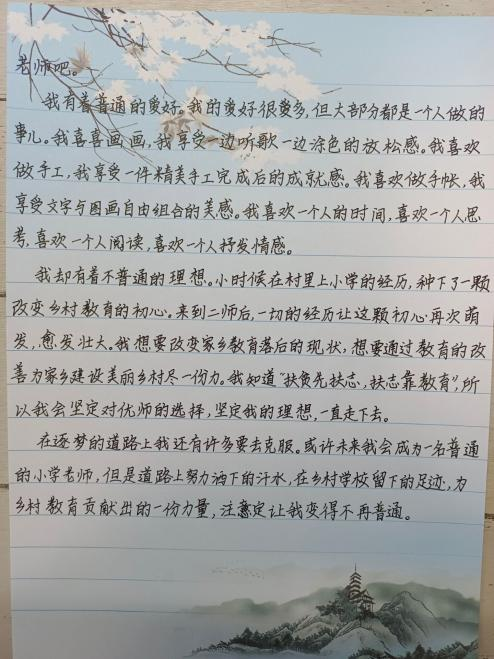 老师吧。
我有着普通的爱好。我的爱好很多,但大部分都是一个人做的
事儿。我喜喜画画,我享受一边听歌一边涂色的放松感。我喜欢
做手工,我享受一件精美手工完成后的成就感。我喜欢做手帐,我
享受文字与图画自由组合的美感。我喜欢一个人的时间,喜欢一个人思
考,喜欢一个人阅读,喜欢一个人抒发情感。
我却有着不普通的理想。小时候在村里上小学的经历,种下了一颗
改变乡村教育的初心。来到二师后,一切的经历让这颗初心再次萌
发,愈发壮大。我想要改变家乡教育落后的现状,想要通过教育的改
善为家乡建设美丽乡村尽一份力。我知道“扶贫先扶志,扶志靠教育”,所
以我会坚定对优师的选择,坚定我的理想,一直走下去。
在逐梦的道路上我还有许多要去克服。或许未来我会成为一名普通
的小学老师,但是道路上努力洒下的汗水,在乡村学校留下的足迹,为
乡村教育贡献出的一份力量,注意定让我变得不再普通。